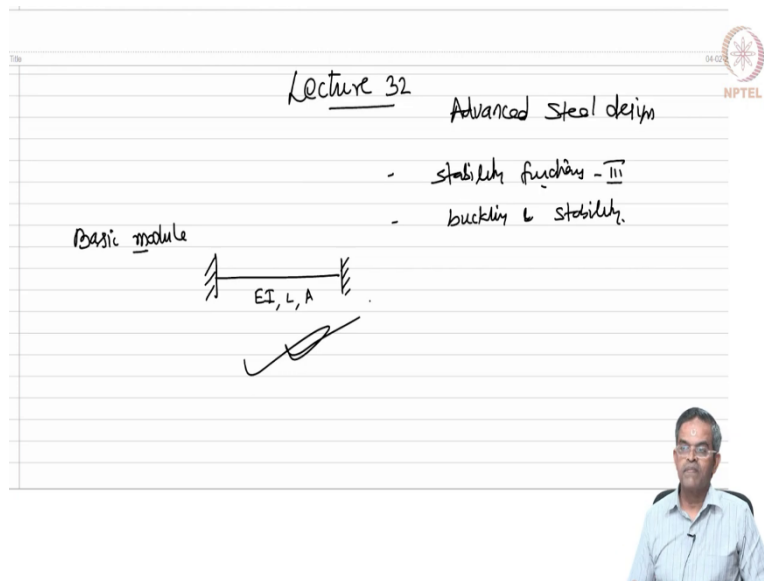 Title
04-02-2
NPTEL
Lecture 32
Advanced Steel design
- stability functions - III
- buckling & stability.
Basic module
EI, L, A